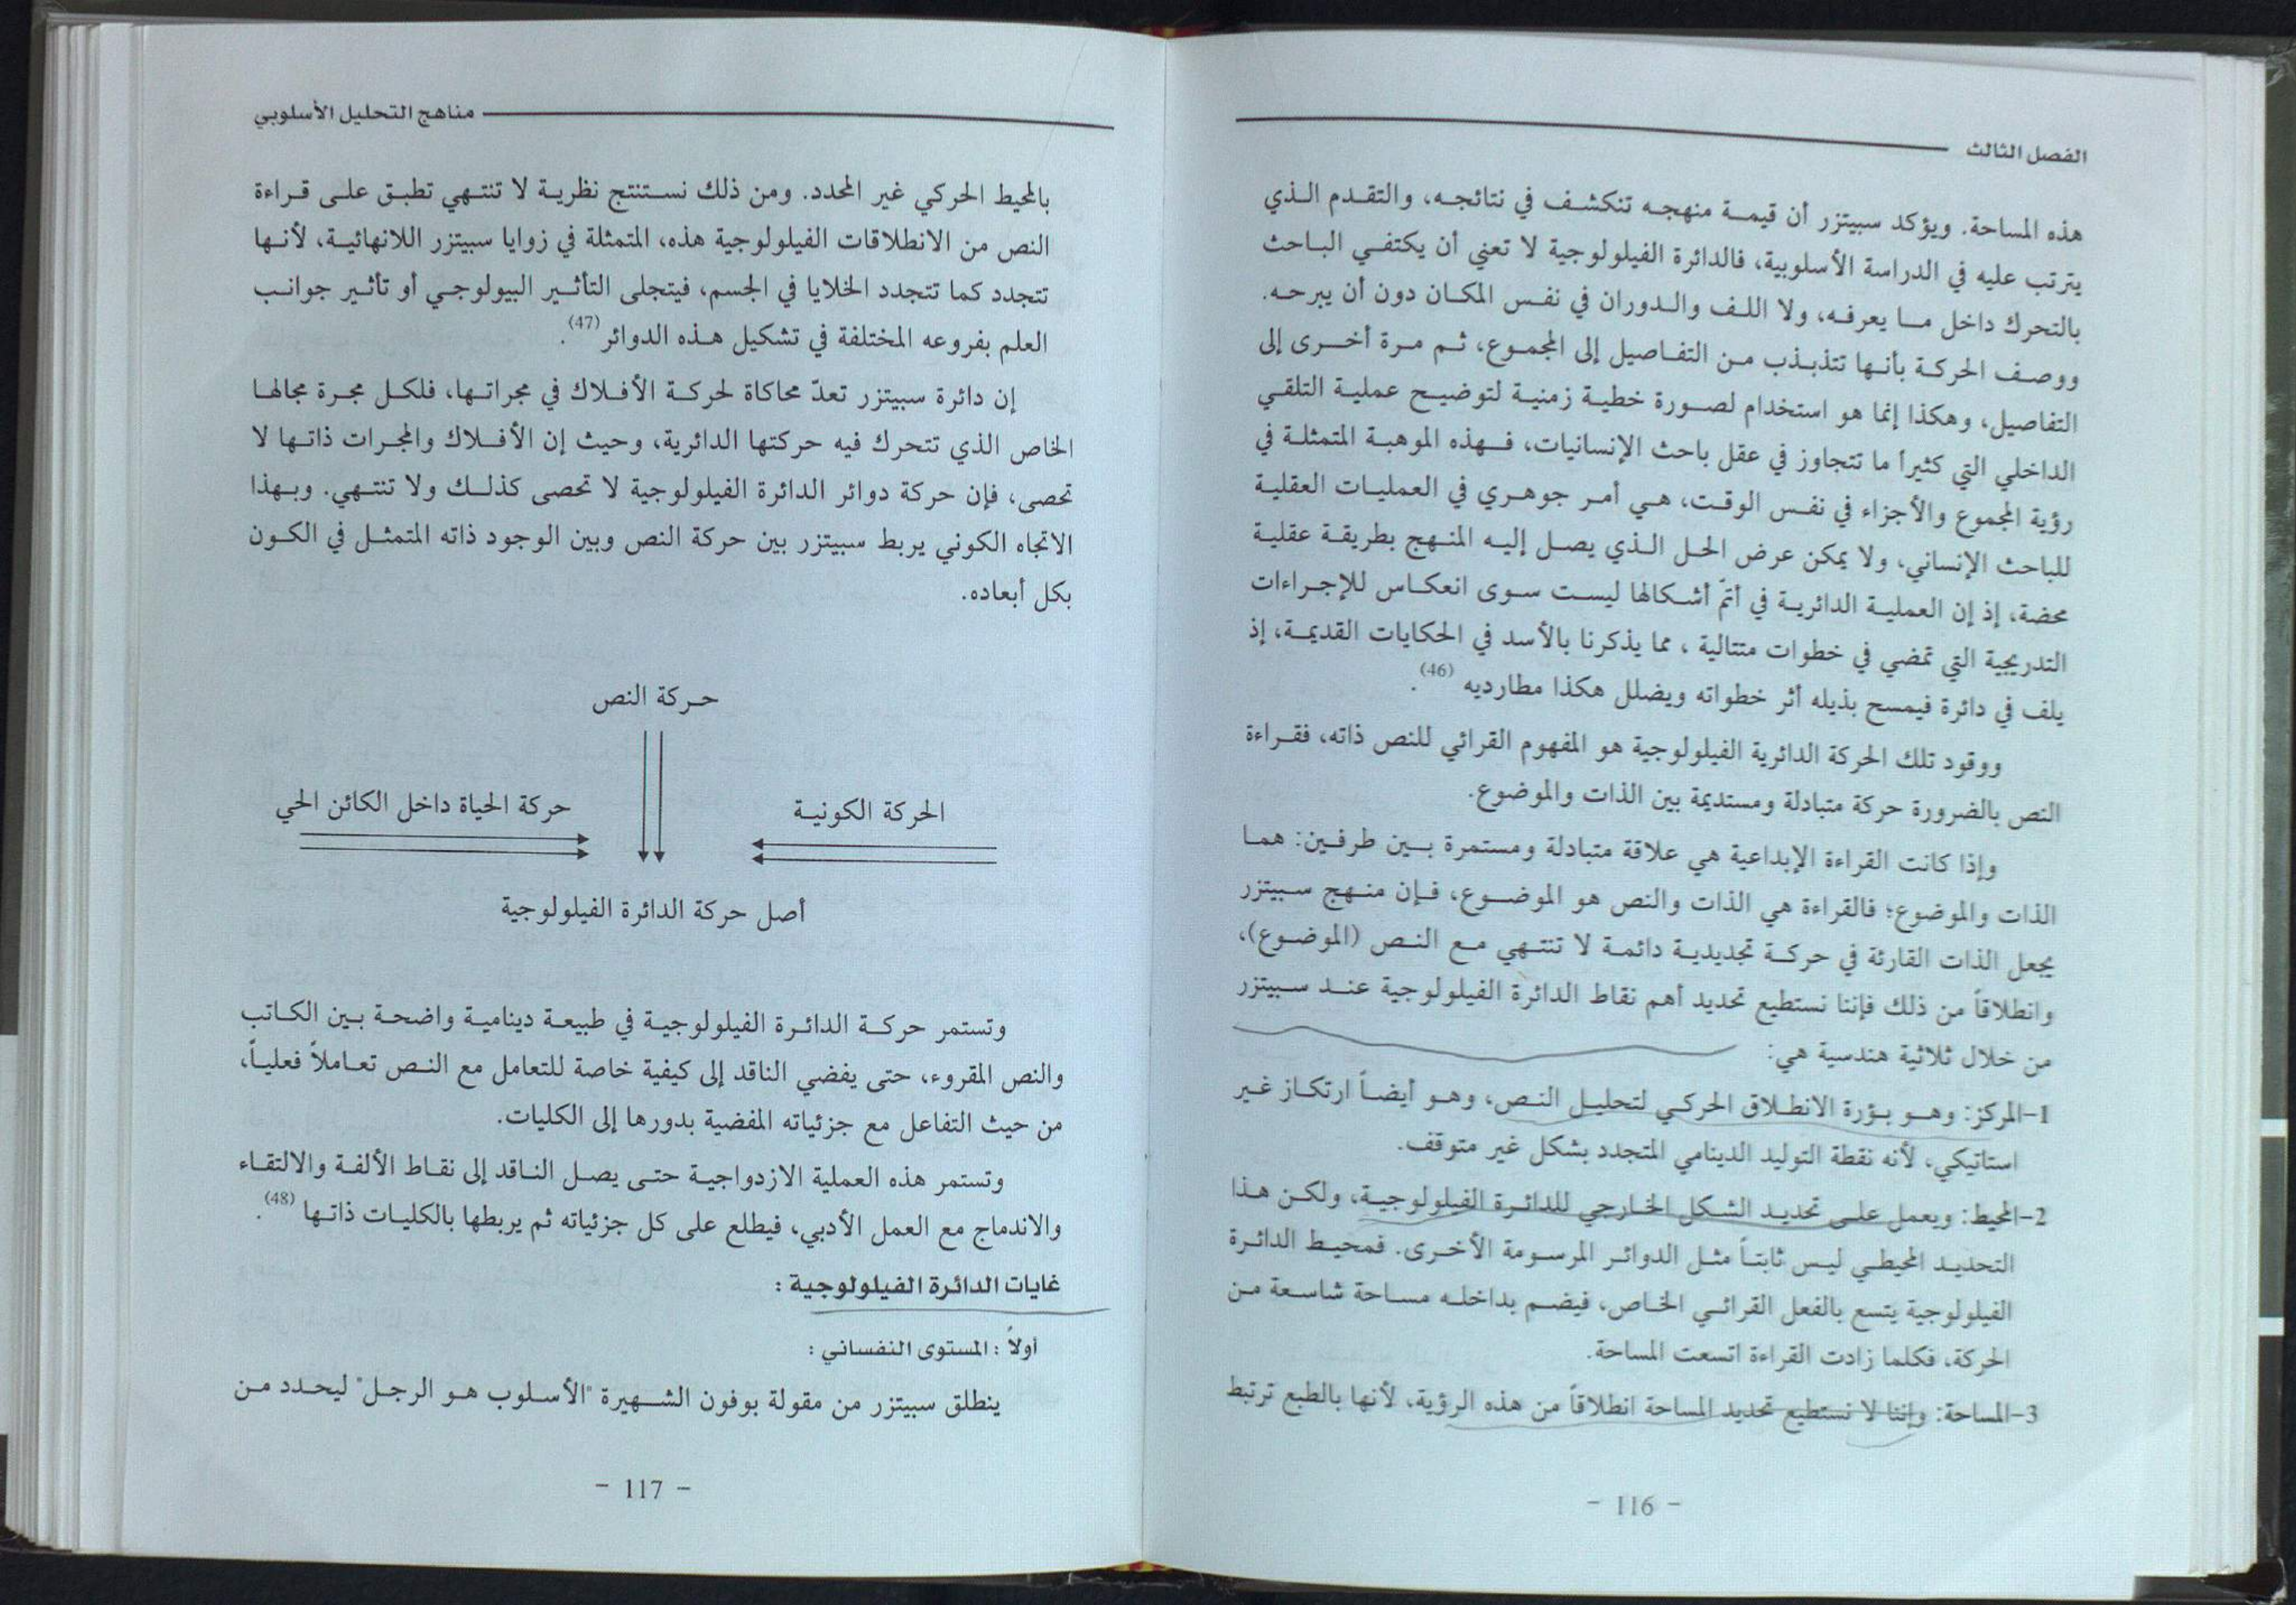 الفصل الثالث
هذه المساحة. ويؤكد سبيتزر أن قيمة منهجه تنكشف في نتائجه، والتقدم الذي
يترتب عليه في الدراسة الأسلوبية، فالدائرة الفيلولوجية لا تعني أن يكتفي الباحث
بالتحرك داخل ما يعرفه، ولا اللف والدوران في نفس المكان دون أن يبرحه.
ووصف الحركة بأنها تتذبذب من التفاصيل إلى المجموع، ثم مرة أخرى إلى
التفاصيل، وهكذا إنما هو استخدام لصورة خطية زمنية لتوضيح عملية التلقي
الداخلي التي كثيراً ما تتجاوز في عقل باحث الإنسانيات، فهذه الموهبة المتمثلة في
رؤية المجموع والأجزاء في نفس الوقت، هي أمر جوهري في العمليات العقلية
للباحث الإنساني، ولا يمكن عرض الحل الذي يصل إليه المنهج بطريقة عقلية
محضة، إذ إن العملية الدائرية في أتمّ أشكالها ليست سوى انعكاس للإجراءات
التدريجية التي تمضي في خطوات متتالية ، مما يذكرنا بالأسد في الحكايات القديمة، إذ
يلف في دائرة فيمسح بذيله أثر خطواته ويضلل هكذا مطارديه (46).
ووقود تلك الحركة الدائرية الفيلولوجية هو المفهوم القرائي للنص ذاته، فقراءة
النص بالضرورة حركة متبادلة ومستديمة بين الذات والموضوع.
وإذا كانت القراءة الإبداعية هي علاقة متبادلة ومستمرة بين طرفين: هما
الذات والموضوع؛ فالقراءة هي الذات والنص هو الموضوع، فإن منهج سبيتزر
يجعل الذات القارئة في حركة تجديدية دائمة لا تنتهي مع النص (الموضوع)،
وانطلاقاً من ذلك فإننا نستطيع تحديد أهم نقاط الدائرة الفيلولوجية عند سبيتزر
من خلال ثلاثية هندسية هي:
1-المركز: وهو بؤرة الانطلاق الحركي لتحليل النص، وهو أيضاً ارتكاز غير
استاتيكي، لأنه نقطة التوليد الدينامي المتجدد بشكل غير متوقف.
2-المحيط: ويعمل على تحديد الشكل الخارجي للدائرة الفيلولوجية، ولكن هذا
التحديد المحيطي ليس ثابتاً مثل الدوائر المرسومة الأخرى. فمحيط الدائرة
الفيلولوجية يتسع بالفعل القرائي الخاص، فيضم بداخله مساحة شاسعة من
الحركة، فكلما زادت القراءة اتسعت المساحة.
3-المساحة: وإننا لا نستطيع تحديد المساحة انطلاقاً من هذه الرؤية، لأنها بالطبع ترتبط
- 116 -
مناهج التحليل الأسلوبي
بالمحيط الحركي غير المحدد. ومن ذلك نستنتج نظرية لا تنتهي تطبق على قراءة
النص من الانطلاقات الفيلولوجية هذه، المتمثلة في زوايا سبيتزر اللانهائية، لأنها
تتجدد كما تتجدد الخلايا في الجسم، فيتجلى التأثير البيولوجي أو تأثير جوانب
العلم بفروعه المختلفة في تشكيل هذه الدوائر (47).
إن دائرة سبيتزر تعدّ محاكاة لحركة الأفلاك في مجراتها، فلكل مجرة مجالها
الخاص الذي تتحرك فيه حركتها الدائرية، وحيث إن الأفلاك والمجرات ذاتها لا
تحصى، فإن حركة دوائر الدائرة الفيلولوجية لا تحصى كذلك ولا تنتهي. وبهذا
الاتجاه الكوني يربط سبيتزر بين حركة النص وبين الوجود ذاته المتمثل في الكون
بكل أبعاده.
حركة النص
الحركة الكونية
حركة الحياة داخل الكائن الحي
أصل حركة الدائرة الفيلولوجية
وتستمر حركة الدائرة الفيلولوجية في طبيعة دينامية واضحة بين الكاتب
والنص المقروء، حتى يفضي الناقد إلى كيفية خاصة للتعامل مع النص تعاملاً فعلياً،
من حيث التفاعل مع جزئياته المفضية بدورها إلى الكليات.
وتستمر هذه العملية الازدواجية حتى يصل الناقد إلى نقاط الألفة والالتقاء
والاندماج مع العمل الأدبي، فيطلع على كل جزئياته ثم يربطها بالكليات ذاتها (48).
غايات الدائرة الفيلولوجية :
أولاً : المستوى النفساني :
ينطلق سبيتزر من مقولة بوفون الشهيرة "الأسلوب هو الرجل" ليحدد من
- 117 -